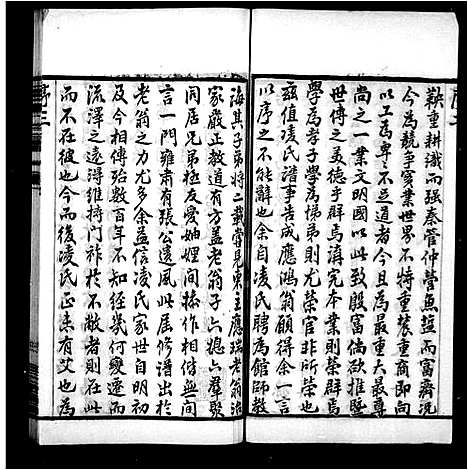 鞅重耕識而强秦管仲營魚鹽而富齊況
今為競爭實業世界不特重農重商即向
以工為卑卑不足道者今且為最重大最尊
尚之一業文明國以此致殷富倘欲推暨
世傳之美德乎辟焉講究孝弟則榮辟焉
學為孝子學為悌弟則尤榮官非所榮也
兹值凌氏譜事告成應鴻翁顧得余一言
以序之不能辭也余自凌氏聘為館師教
海其子弟將二載常見東主應瑞老翁治
家嚴正教道有方盖老翁子六媳六羣聚
同居兄弟極友愛妯娌間操作相偕無間
言一門雍肅有張公遺風此居修譜出於
老翁之力尤多余益信凌氏家世自明初
及今相傳殆數百年不知經幾何變遷而
流澤之遠得維持門祚於不敝者則在此
而不在彼也今而後凌氏正未有艾也為
序三